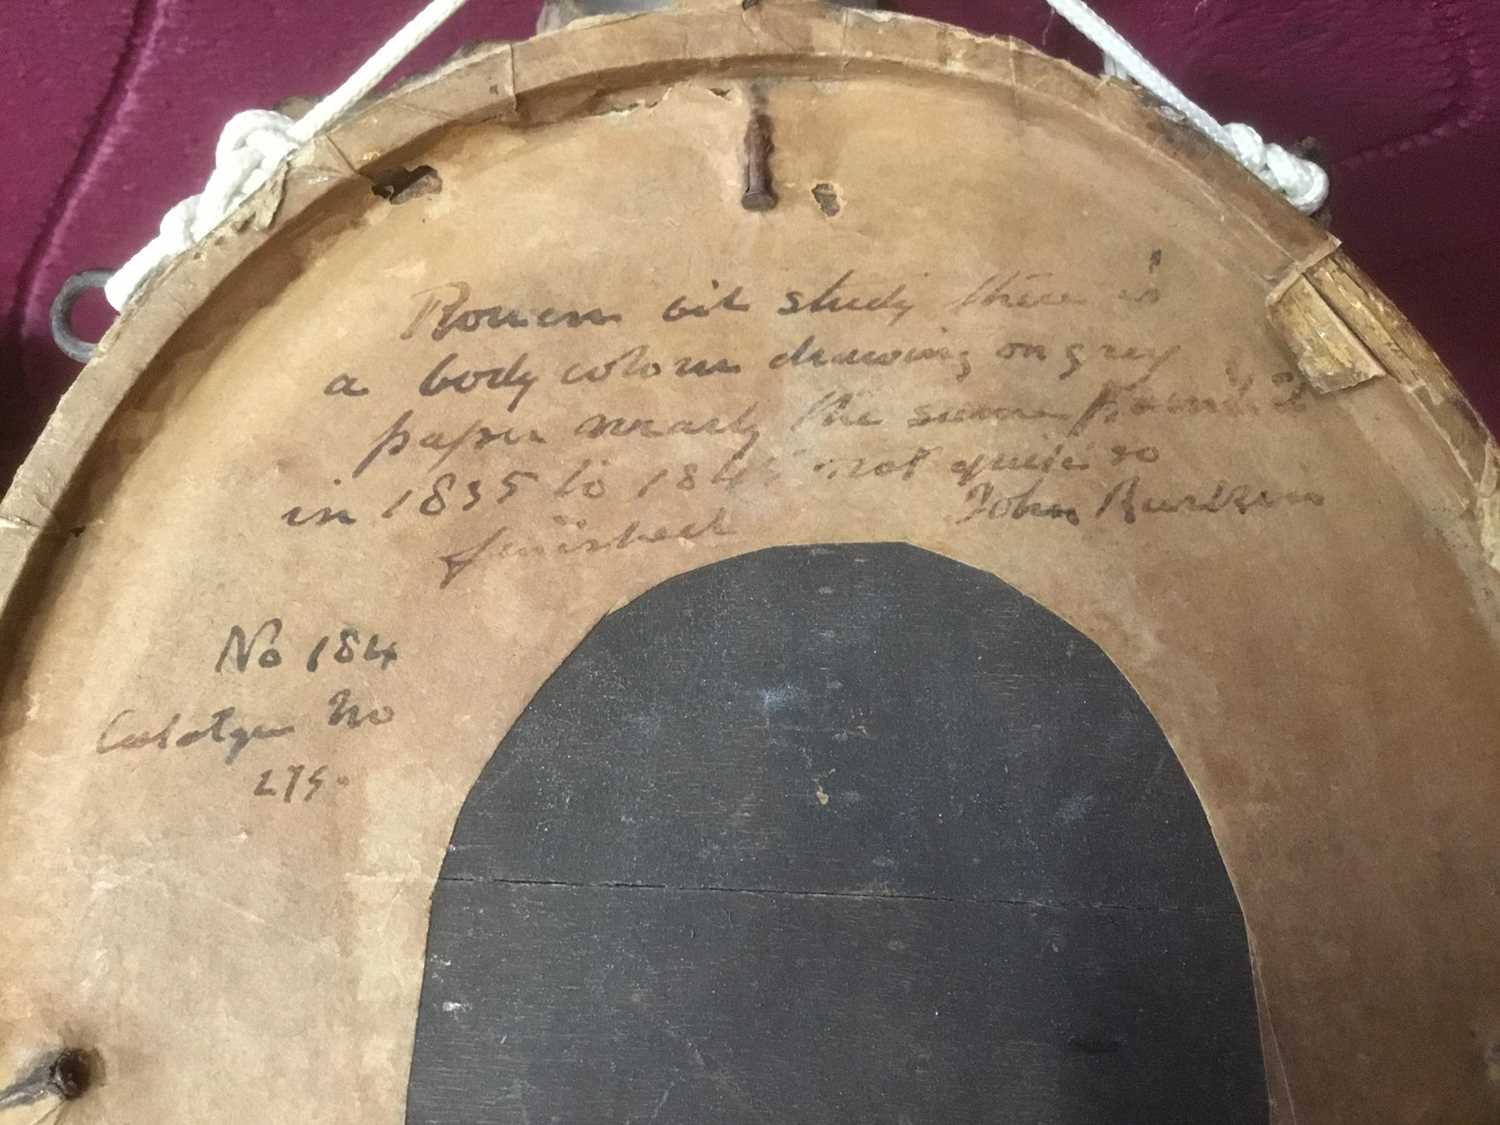 Rouen oil study there is
a body colour drawing on grey
paper nearly the same
in 1835 to 184 not quite so
finished John
No 184
No